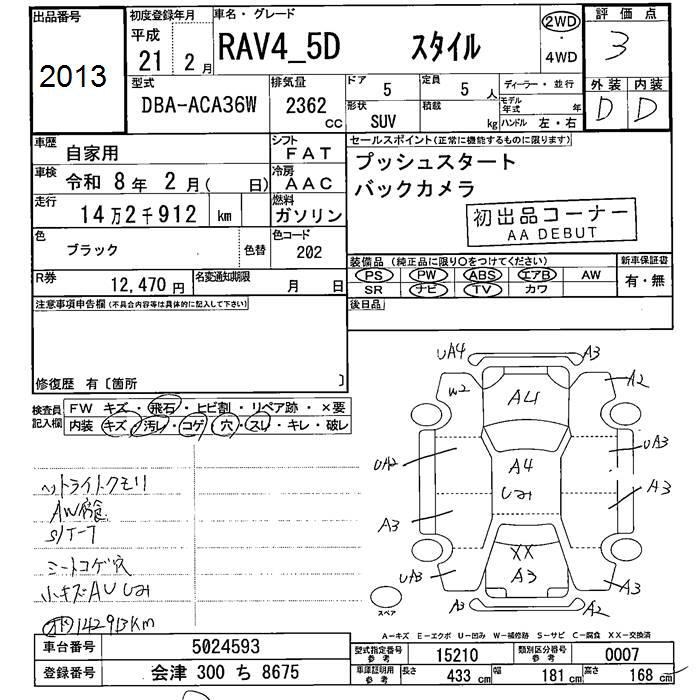 出品番号 初度登録年月 車名・グレード 評価点
2013 平成 21 2月 RAV4_5D スタイル 2WD・4WD 3
型式 排気量 ドア 定員 ディーラー・並行 外装 内装
DBA-ACA36W 2362 cc 5 5人 モデル年式 年 D D
形状 SUV 積載 kg ハンドル 左・右
車歴 自家用 シフト FAT セールスポイント(正常に機能するものに限ります)
車検 令和 8年 2月( 日) 冷房 AAC プッシュスタート
バックカメラ
走行 14万2千912 km 燃料 ガソリン 初出品コーナー
AA DEBUT
色 ブラック 色替 色コード 202
装備品(純正品に限り○をつけてください) 新車保証書
R券 12,470円 名変通知期限 月 日 PS PW ABS エアB AW 有・無
SR ナビ TV カワ
注意事項申告欄(不具合内容等は具体的に記入して下さい) 後日品
修復歴 有〔箇所 〕
検査員記入欄 FW キズ・飛石・ヒビ割・リペア跡・×要
内装・キズ・汚レ・コゲ・穴・スレ・キレ・破レ
ヘットライトクモリ
AW腐食
S/T-7
シートコゲ穴
小キズAUしみ
142913Km
UA4 A3
W2 A4 A2
UA2 A4 UA3
しみ A3
A3
XX
UA3 A3 A3
A3 A2
スペア
A-キズ E-エクボ U-凹み W-補修跡 S-サビ C-腐食 XX-交換済
車台番号 5024593 型式指定番号 参考 15210 類別区分番号 参考 0007
登録番号 会津 300 ち 8675 車庫証明用 参考 長さ 433 cm 幅 181 cm 高さ 168 cm